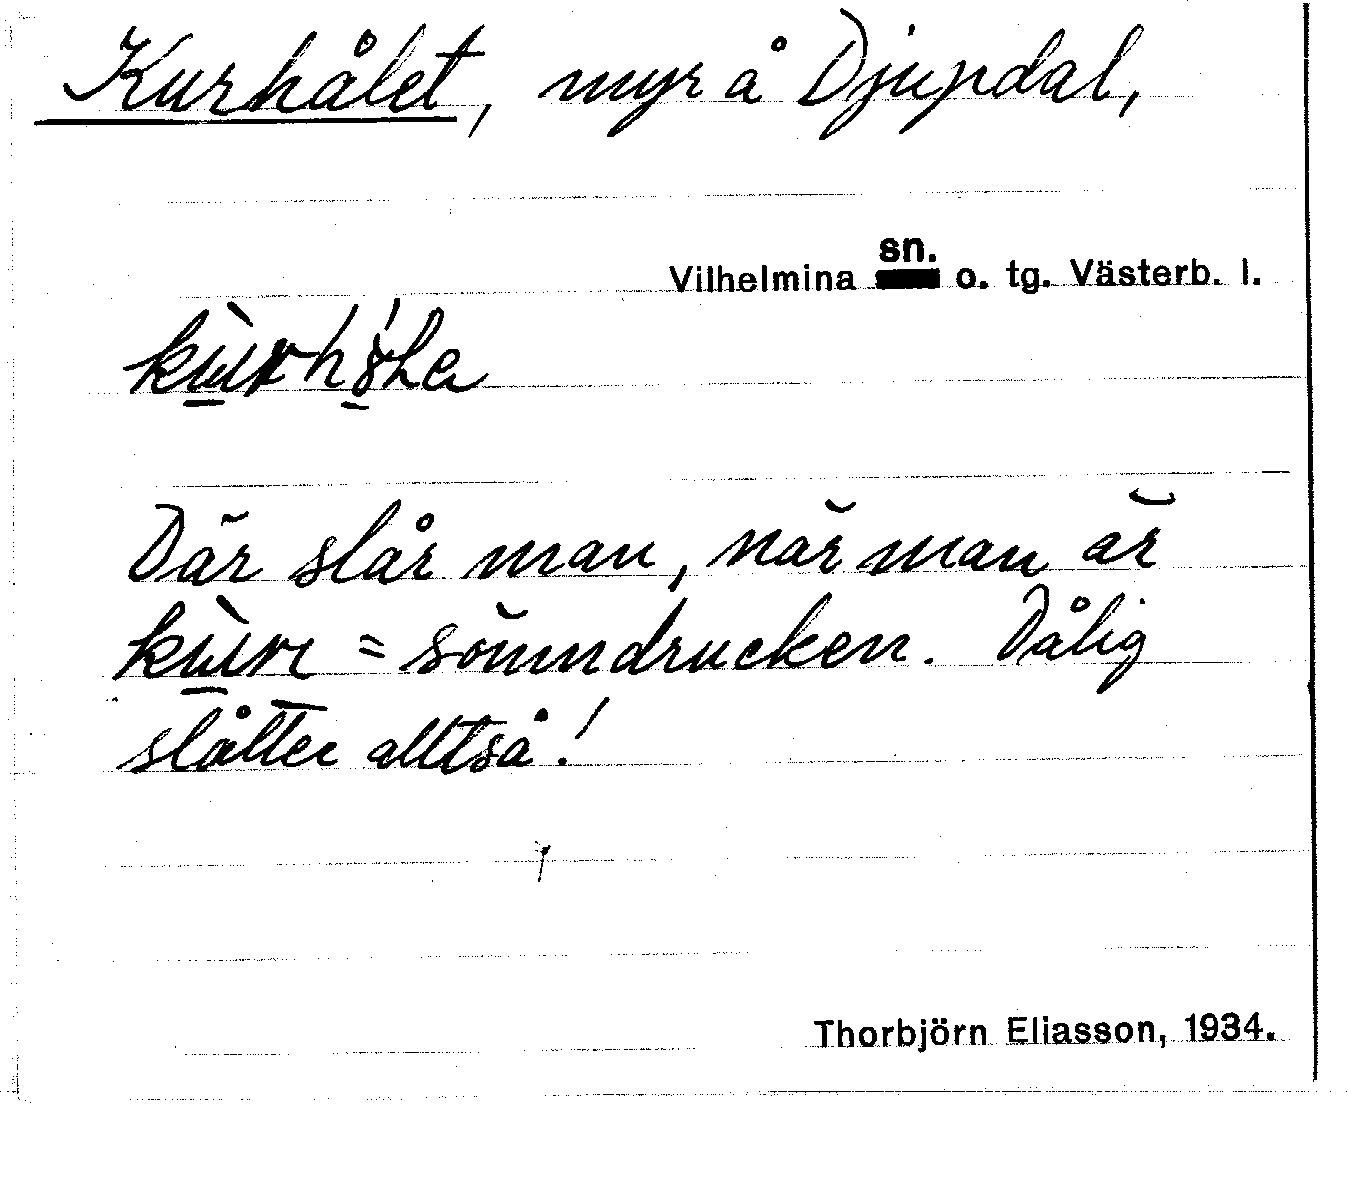 Kurhålet, myr å Djupdal,
Vilhelmina sn. o. tg. Västerb. l.
Där slår man, när man är
= sömndrucken. Dålig
slåtter alltså!
Thorbjörn Eliasson, 1934.